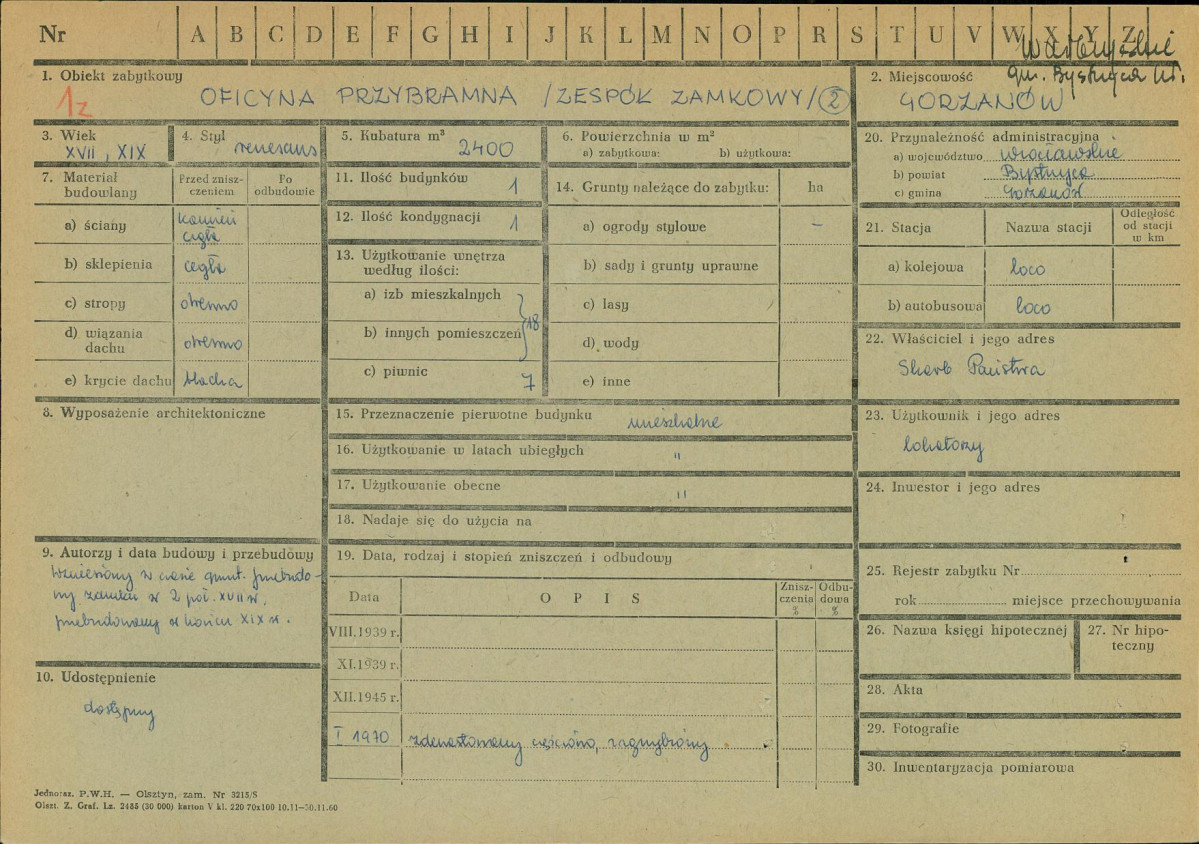 Nr A B C D E F G H I J K L M N O P R S T U V W X Y Z
Wałbrzyskie
gm. Bystrzyca Kł.
1. Obiekt zabytkowy
1z
OFICYNA PRZYBRAMNA /ZESPÓŁ ZAMKOWY/ 2
2. Miejscowość
GORZANÓW
3. Wiek
XVII, XIX
4. Styl
renesans
5. Kubatura m³
2400
6. Powierzchnia w m²
a) zabytkowa: b) użytkowa:
7. Materiał budowlany
Przed zniszczeniem
Po odbudowie
a) ściany kamień cegła
b) sklepienia cegła
c) stropy drewno
d) wiązania dachu drewno
e) krycie dachu blacha
8. Wyposażenie architektoniczne
9. Autorzy i data budowy i przebudowy
Wzniesiony w czasie grunt. przebudo-
wy zamku w 2 poł. XVII w.
przebudowany w końcu XIX w.
10. Udostępnienie
dostępny
11. Ilość budynków 1
12. Ilość kondygnacji 1
13. Użytkowanie wnętrza
według ilości:
a) izb mieszkalnych
b) innych pomieszczeń 18
c) piwnic 7
14. Grunty należące do zabytku: ha
a) ogrody stylowe –
b) sady i grunty uprawne
c) lasy
d) wody
e) inne
15. Przeznaczenie pierwotne budynku mieszkalne
16. Użytkowanie w latach ubiegłych "
17. Użytkowanie obecne "
18. Nadaje się do użycia na
19. Data, rodzaj i stopień zniszczeń i odbudowy
Data OPIS Zniszczenia % Odbudowa %
VIII.1939 r.
XI.1939 r.
XII.1945 r.
I 1970 zdewastowany częściowo, zagrzybiony
20. Przynależność administracyjna
a) województwo wrocławskie
b) powiat Bystrzyca
c) gmina Gorzanów
21. Stacja Nazwa stacji Odległość od stacji w km
a) kolejowa loco
b) autobusowa loco
22. Właściciel i jego adres
Skarb Państwa
23. Użytkownik i jego adres
lokatorzy
24. Inwestor i jego adres
25. Rejestr zabytku Nr
rok miejsce przechowywania
26. Nazwa księgi hipotecznej
27. Nr hipo-
teczny
28. Akta
29. Fotografie
30. Inwentaryzacja pomiarowa
Jednoraz. P.W.H. — Olsztyn, zam. Nr 3215/S
Olszt. Z. Graf. Lz. 2485 (30 000) karton V kl. 220 70x100 10.11—30.11.60